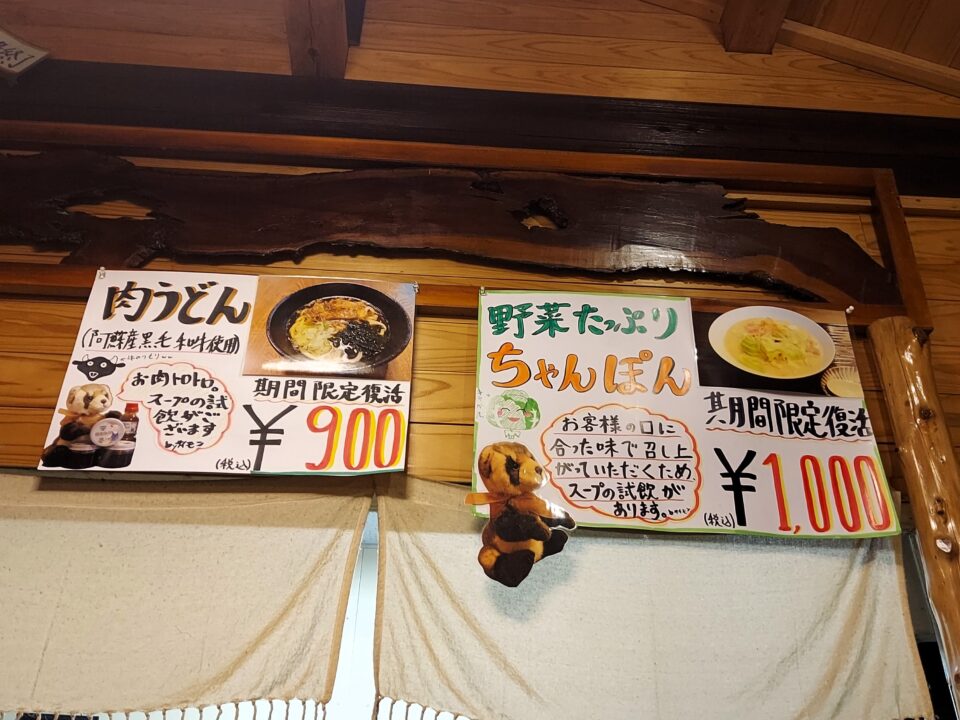 肉うどん
(阿蘇産黒毛和牛使用)
お肉トロトロ。
スープの試
飲がご
ざいます
期間限定復活
(税込)
¥900
野菜たっぷり
ちゃんぽん
お客様の口に
合った味で召し上
がっていただくため、
スープの試飲が
あります。
期間限定復活
(税込)
¥1,000